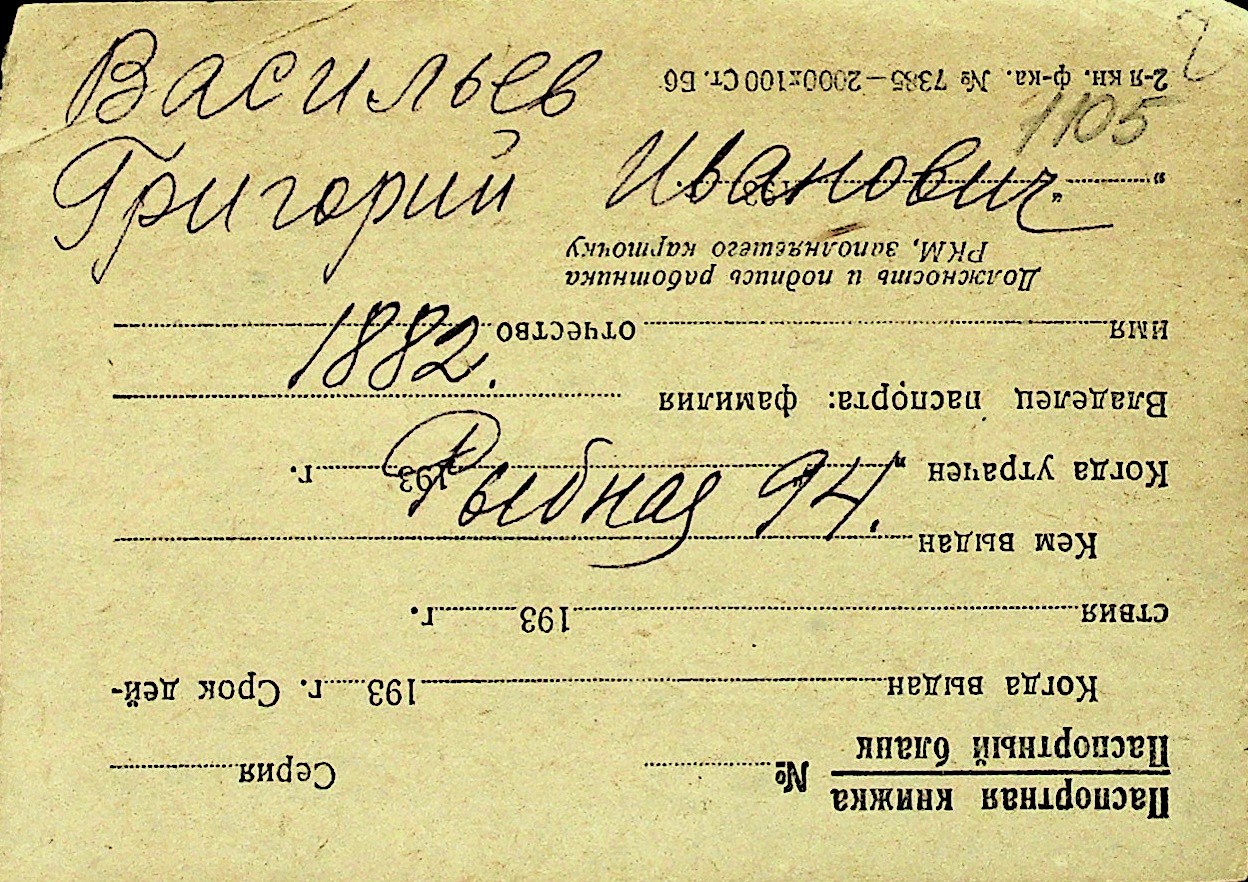 Васильев
1105
Григорий Иванович
1882.
Рыбная 94.
Паспортная книжка
Паспортный бланк
№ Серия
Когда выдан 193 г. Срок дей-
ствия 193 г.
Кем выдан
Когда утрачен „ “ 193 г.
Владелец паспорта: фамилия
имя отчество
Должность и подпись работника
РКМ, заполняещего карточку
„ “ 193 г.
2-я кн. ф-ка. № 7385—2000х100 Ст. Б6